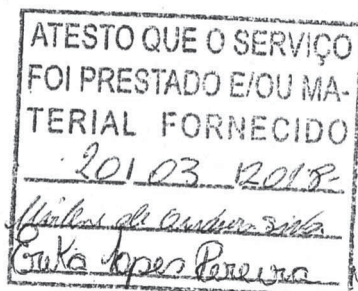 ATESTO QUE O SERVIÇO
FOI PRESTADO E/OU MA-
TERIAL FORNECIDO
20/03/2018
Erika Lopes Pereira